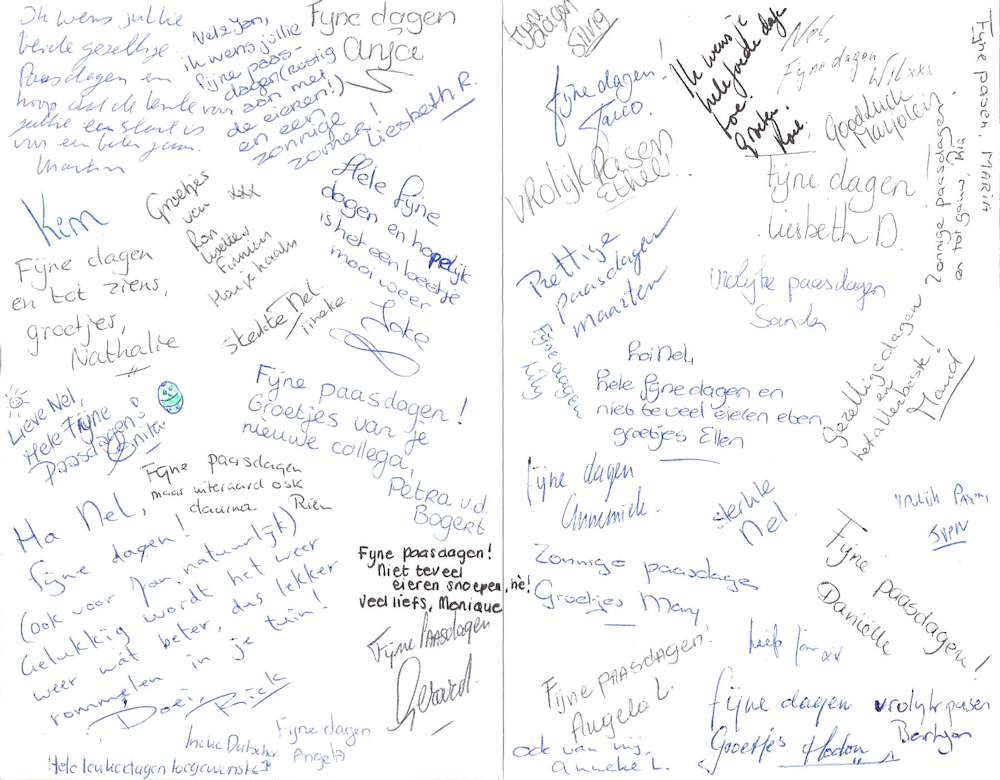 Ik wens jullie
beide gezellige
Paasdagen en
hoop dat de lente
jullie een start is
van een beter jaar.
Martin
Nel & Jan,
ik wens jullie
fijne paas-
dagen (rustig
van aan met
de eieren!)
en een
zonnige
zomer!
Liesbeth R.
Fijne dagen
Anja
Kim
Groetjes
van xxx
Ron
Fijne dagen
en tot ziens,
groetjes,
Nathalie
Sterkte Nel.
Ineke
Hele fijne
dagen en hopelijk
is het een beetje
mooi weer
Joke
Lieve Nel,
Hele Fijne
Paasdagen!
Anita
Fijne paasdagen!
Groetjes van je
nieuwe collega,
Petra v.d.
Bogert
Fijne paasdagen
maar uiteraard ook
daarna. Rien
Ha Nel,
fijne dagen!
(ook voor Jan, natuurlijk)
Gelukkig wordt het weer
weer wat beter, dus lekker
rommelen in je tuin!
Doei, Rick
Fijne paasdagen!
Niet teveel
eieren snoepen, hè!
Veel liefs, Monique
Fijne Paasdagen
Gerard.
Ineke
Fijne dagen
Angela
Hele leuke dagen toegewenst
Fijne
dagen
Fijne dagen!
Taco.
Ik wens je
hele goede dagen
toe
Groeten
Roel.
Nel,
Fijne dagen
Wil xxx
Good luck
Marjolein
Fijne pasen. Maria
Vrolijk Pasen
Ethel!
Fijne dagen
Liesbeth D.
Zonnige paasdagen
en tot gauw, Ria
Prettige
paasdagen
Maarten
Vrolijke paasdagen
Sandra
Fijne dagen
Lily
Hoi Nel,
hele fijne dagen en
niet te veel eieren eten
groetjes Ellen
Gezellige dagen
en
het allerbeste!
Maud
Fijne dagen
Annemiek.
Sterkte
Nel.
Vrolijk Pasen
Sven
Zonnige paasdagen
Groetjes Mary
Fijne paasdagen!
Daniëlle
Fijne paasdagen!
Angela L.
ook van mij,
Anneke L.
liefs xx
Fijne dagen
Groetjes
vrolijk pasen
Bertjan